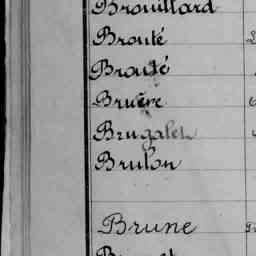 Brouillard
Brouté
Brouté
Bruère
Brugalet
Brulon
Brune